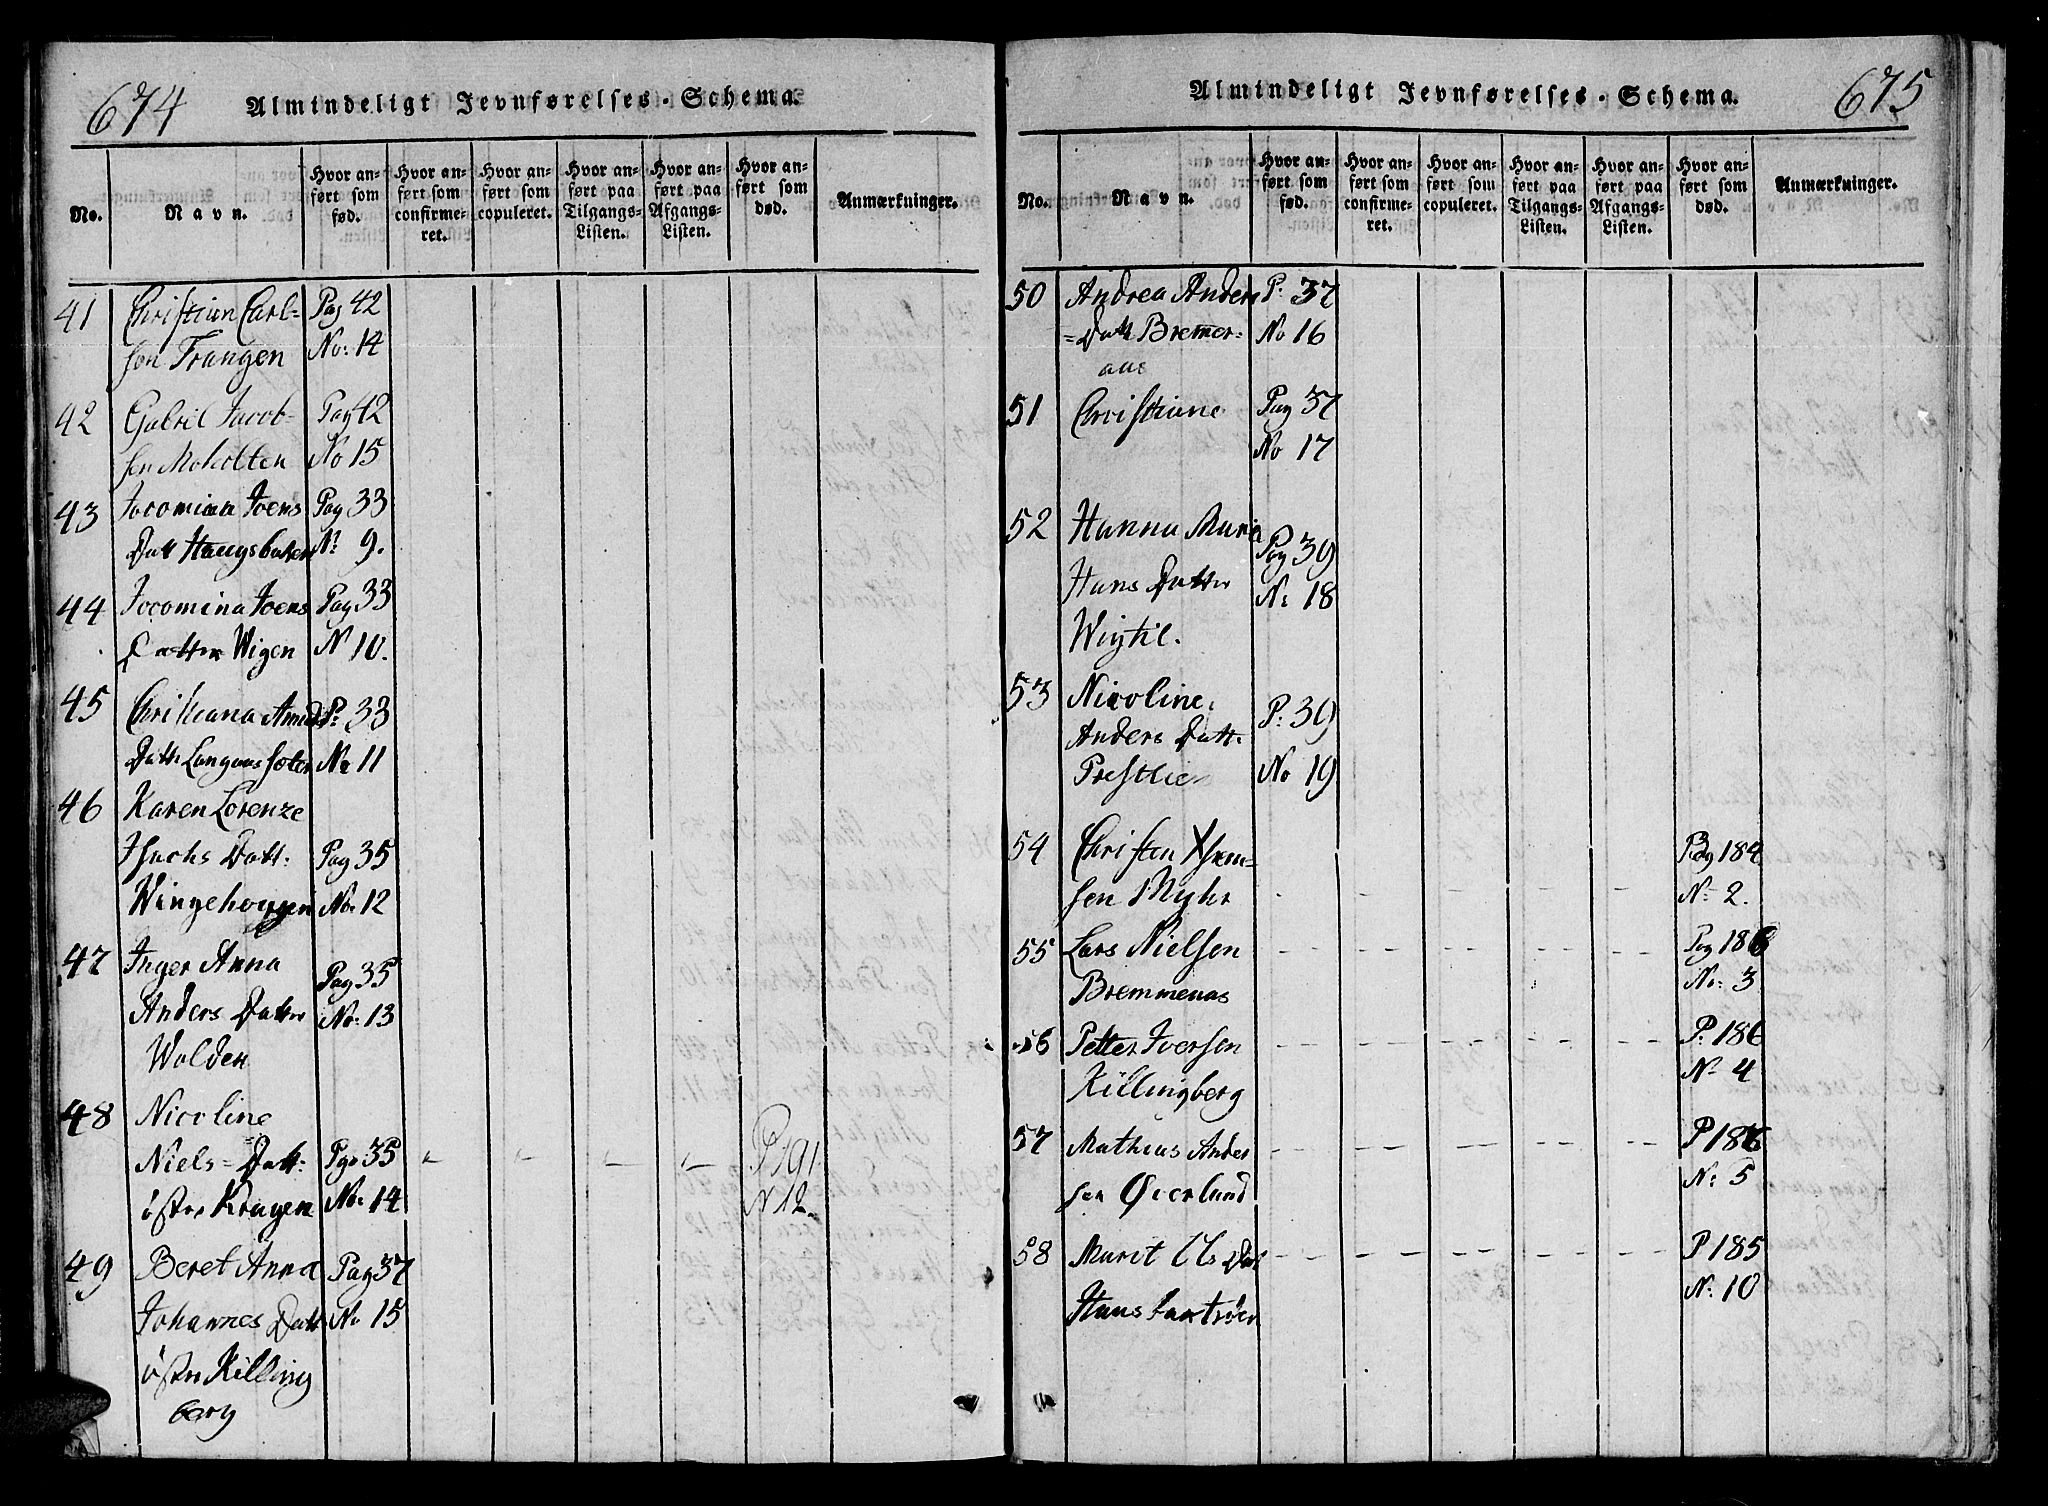 674
Almindeligt Jevnførelses-Schema.
No.
Navn.
Hvor anført som fød.
Hvor anført som confirmeret.
Hvor anført som copuleret.
Hvor anført paa Tilgangs-Listen.
Hvor anført paa Afgangs-Listen.
Hvor anført som død.
Anmærkninger.
41 Christian Carl= Pag 42
sen Trangen No: 14
42 Gabril Jacob- Pag 42
sen Moholten No 15
43 Jocomina Joens Pag 33
Datt Haugsbaken N: 9.
44 Jocomina Joens Pag 33
Datter Wigen N 10.
45 Christiana P: 33
Datt Langaas Sæter No 11
46 Karen Lorenze
Isachs Datt: Pag 35
Wingehougen No: 12
47 Inger Anna
Pag 35
Anders Datter No: 13
Wolden
48 Nicoline
Niels=Datt: Pag 35 - - - - P 191
østre Kragen No: 14 N 12.
49 Beret Anna Pag 37
Johannes Datt No 15
østre Killing
berg
675
Almindeligt Jevnførelses-Schema.
No.
Navn.
Hvor anført som fød.
Hvor anført som confirmeret.
Hvor anført som copuleret.
Hvor anført paa Tilgangs-Listen.
Hvor anført paa Afgangs-Listen.
Hvor anført som død.
Anmærkninger.
50 Andrea Anders P: 37
=Datt Bremer- No 16
aas
51 Christiane Pag 37
No 17
52 Hanna Maria
Pag 39
Hans Datter N: 18
Wigtil.
53 Nicoline
Anders Datt: P: 39
Prestlie No 19
54 Christen Pag 184
sen Myhr N: 2.
55 Lars Nielsen Pag 186
Bremmenas No: 3
56 Petter Iversen P: 186
Killingberg N: 4
57 Mathias Ander P 186
sen Øverland N: 5
58 Marit Ols Dat P 185
N: 10